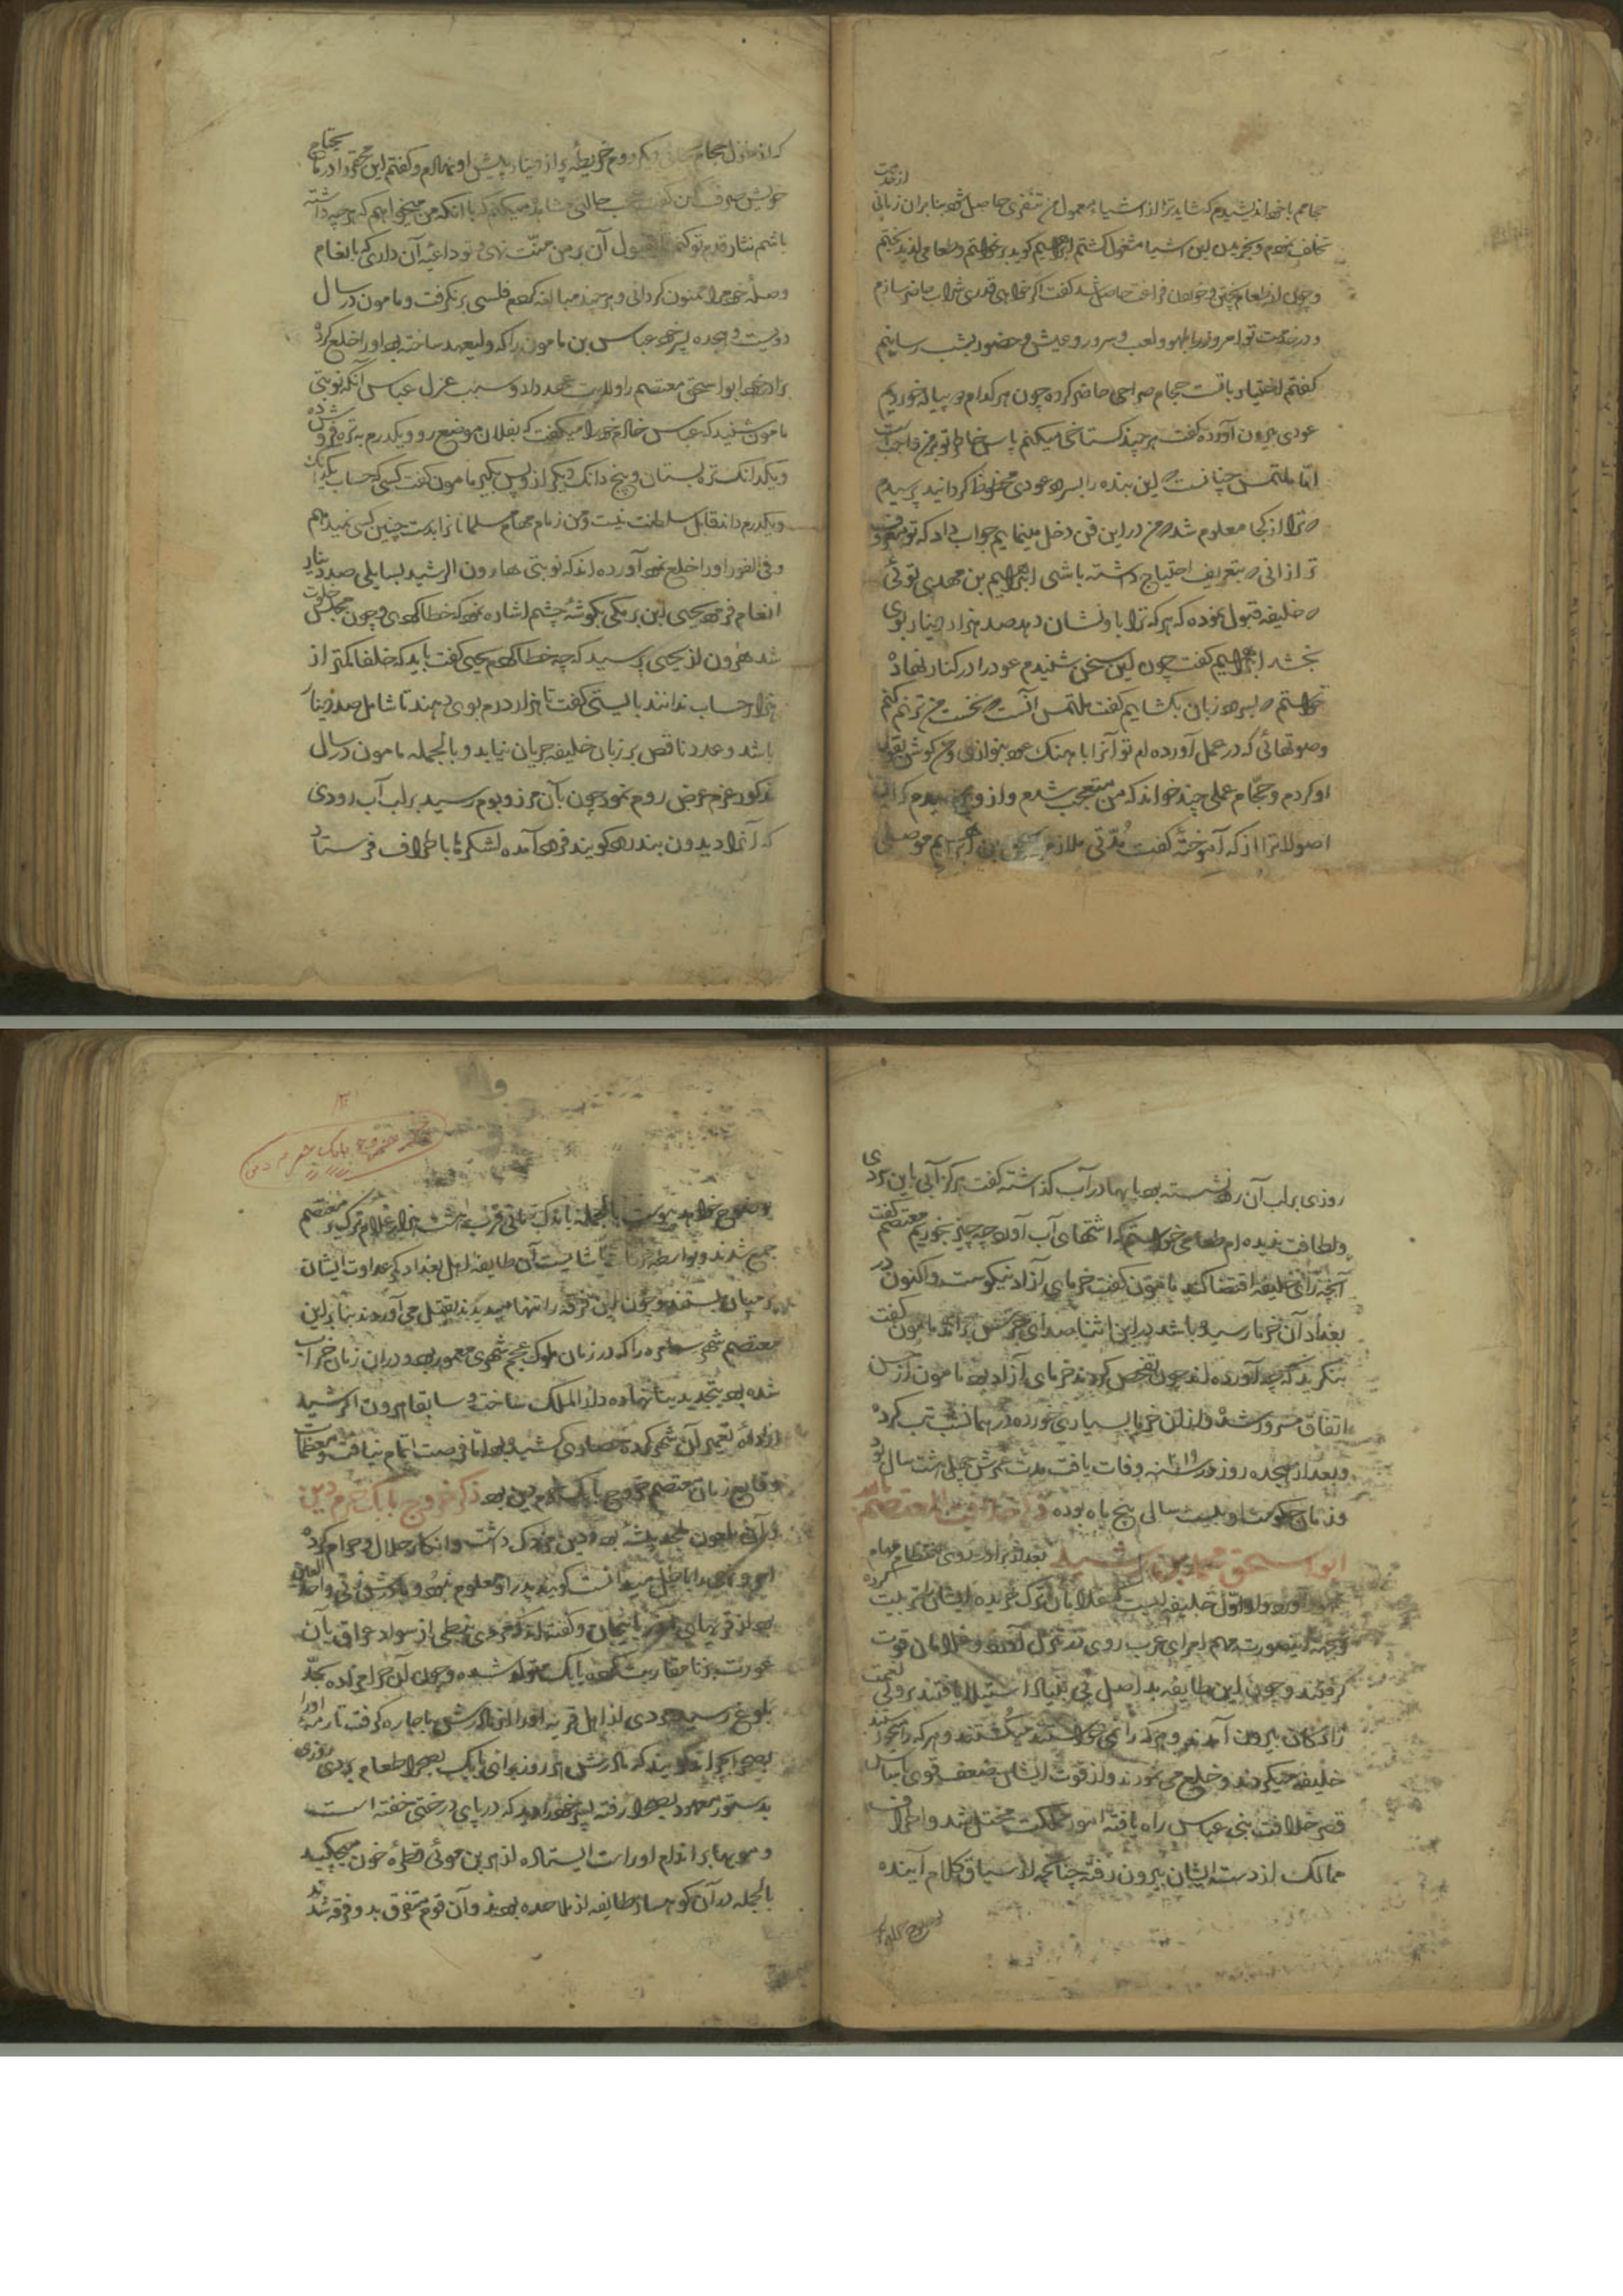 از خدمت
حجامم با خود اندیشیدم که شاید ترا از اشیاء معمول من تنفری حاصل شود بنابران زمانی
تخلف نمودم و بخریدن این اشیا مشغول گشتم ابراهیم گوید برخواستم و طعامی لذیذ پختم
و چون از طعام پختن و خوردن فراغت حاصل شد گفت اگر خواهی قدری شراب حاضر سازم
و در خدمت تو امروز را بلهو و لعب و سرور و عیش و حضور بشب رسانیم
گفتم اختیار باتست حجام صراحی حاضر کرده چون هر کدام دو پیاله خوردیم
عودی بیرون آورده گفت هر چند گستاخی میکنم پاس خاطر تو بر من واجبست
اما ملتمس چنانست که این بنده را بسرود عودی محظوظ گردانید پرسیدم
که ترا از کجا معلوم شد که من در این فن دخل مینمایم جواب داد که تو معروف
تر ازانی که بتعریف احتیاج داشته باشی ابراهیم بن مهدی توئی
که خلیفه قبول نموده که هر که ترا باو نشان دهد صد هزار دینار بوی
بخشد ابراهیم گفت چون این سخن شنیدم عود را در کنار نهاده
خواستم که بسرود زبان بگشایم گفت ملتمس آنست که نخست من ترنم کنم
و صوتهائی که در عمل آورده ام تو آنرا باهنگ عود بنوازی من گوش بقول
او کردم و حجام عملی چند خواند که من متعجب شدم و ازو پرسیدم که این
اصول را ترا از که آموختهٔ گفت مدتی ملازم اسحق بن ابراهیم موصلی
که از منزل حجام بیرون روم خریطهٔ پر از دینار پیش او نهادم و گفتم این محقر را در مایحتاج
خویش صرف کن گفت عجب حالتی مشاهده میکنم که با آنکه من میخواهم که هر چه داشته
باشم نثار قدم تو کنم و بقبول آن بر من منت نهی تو داعیهٔ آن داری که بانعام
و صلهٔ خود مرا ممنون گردانی و هر چند مبالغه کردم فلسی بر نگرفت و مامون در سال
دویست و هجده پسر خود عباس بن مامون را که ولیعهد ساخته بود او را خلع کرده
برادر خود ابو اسحق معتصم را ولایت عهد داد و سبب عزل عباس آنکه نوبتی
مامون شنید که عباس خادم خود را میگفت که بفلان موضع رو و یکدرم به تره فروش ده
و یکدانک تره بستان و پنج دانک دیگر ازو پس بگیر مامون گفت کسی که حساب یکدانک
و یکدرم داند قابل سلطنت نیست و من زمام مهام مسلمانان را بدست چنین کسی نمیدهم
و فی الفور او را خلع نمود آورده اند که نوبتی هارون الرشید بسایلی صد دینار
انعام فرمود یحیی بن برمکی بگوشهٔ چشم اشاره نمود که خطا کردی و چون مجلس خلوت
شد هرون از یحیی پرسید که چه خطا کردم یحیی گفت باید که خلفا کمتر از
هزار حساب ندانند بایستی گفت تا هزار درم بوی دهند تا شامل صد دینار
باشد و عدد ناقص بر زبان خلیفه جریان نیابد و بالجمله مامون در سال
مذکور عزم عرض روم نمود چون بآن مرز و بوم رسید بر لب آب رودی
که آنرا بدیدون بندرود گویند فرود آمده لشکرها باطراف فرستاد
روزی بر لب آن رود نشسته بود پایها در آب گذاشته گفت هرگز آبی باین سردی
و لطافت ندیده ام طعامی خواستم که اشتهای آب آورد چه چیز بخوریم معتصم گفت
آنچه رای خلیفه اقتضا کند مامون گفت خرمای آزاد نیکوست و اکنون در
بغداد آن خرما رسیده باشد در این اثنا صدای جرس برآمد مامون گفت
بنگرید که چه آورده اند چون تفحص کردند خرمای آزاد بود مامون از حسن
اتفاق مسرور شد و از ان خرما بسیاری خورده در همانشب تب کرده
و بعد از هجده روز در سنه ۲۱۸ وفات یافت مدت عمرش چهل و هشت سال بود
و زمان حکومت او بیست سال و پنج ماه بوده ذکر خلافت المعتصم بالله
ابو اسحق محمد بن رشید بعد از برادر روی بانتظام مهام
آورد و او اول خلیفه ایست که غلامان ترک خریده ایشان را تربیت کرده
و بجهة اینصورت مهم امرای عرب روی بتنزل آورد و غلامان قوت
گرفتند و چون این طایفه بد اصل بی بنیاد استیلا یافتند بر ولی نعمت
زادگان بیرون آمدند و هر که را نمی خواستند میکشتند و هر که را میخواستند
خلیفه میکردند و خلع می نمودند و از قوت ایشان ضعف قوی باساس
قصر خلافت بنی عباس راه یافته امور مملکت مختل شد و اطراف
ممالک از دست ایشان بیرون رفت چنانچه از سیاق کلام آینده
خروج بابک خرم دین
بوضوح خواهد پیوست بالجمله باندک زمانی قرب هشت هزار غلام ترک بر معتصم
جمع شدند و بواسطه حرکات ناشایست آن طایفه اهل بغداد کمر عداوت ایشان
بر میان بستند و چون این فرقه را تنها میدیدند بقتل می آوردند بنابرین
معتصم شهر سامره را که در زمان ملوک عجم شهری معمور بود و دران زمان خراب
شده بود بتجدید بنا نهاده دار الملک ساخت و سابقا هرون الرشید
ارادهٔ تعمیر آن شهر کرده حصاری کشیده بود اما فرصت اتمام نیافت و معظمات
وقایع زمان معتصم خروج بابک خرم دین بود ذکر خروج بابک خرم دین
و آن ملعون ملحد پیشه بود و دین مزدک داشت و انکار حلال و حرام کرده
امر و نهی را باطل میدانست گویند پدر او معلوم نبود و مادرش زنی واحد العین
بود از قریهای آذربایجان و گفته اند که مردی نبطی از سواد عراق بآن
عورت بزنا مقاربت کرده بابک متولد شده و چون آن حرامزاده بحد
بلوغ رسید مردی از اهل قریه او را از مادرش باجاره گرفت تا رمه او را
بصحرا چراند گویند که مادرش هر روز برای بابک بصحرا طعام بردی روزی
بدستور معهود بصحرا رفته پسر خود را دید که در پای درختی خفته است
و مویها بر اندام او راست ایستاده از هر بن موئی قطرهٔ خون میچکید
بالجمله در آن کوهسار طایفه از ملاحده بودند و آن قوم متفرق بدو فرقه شدند